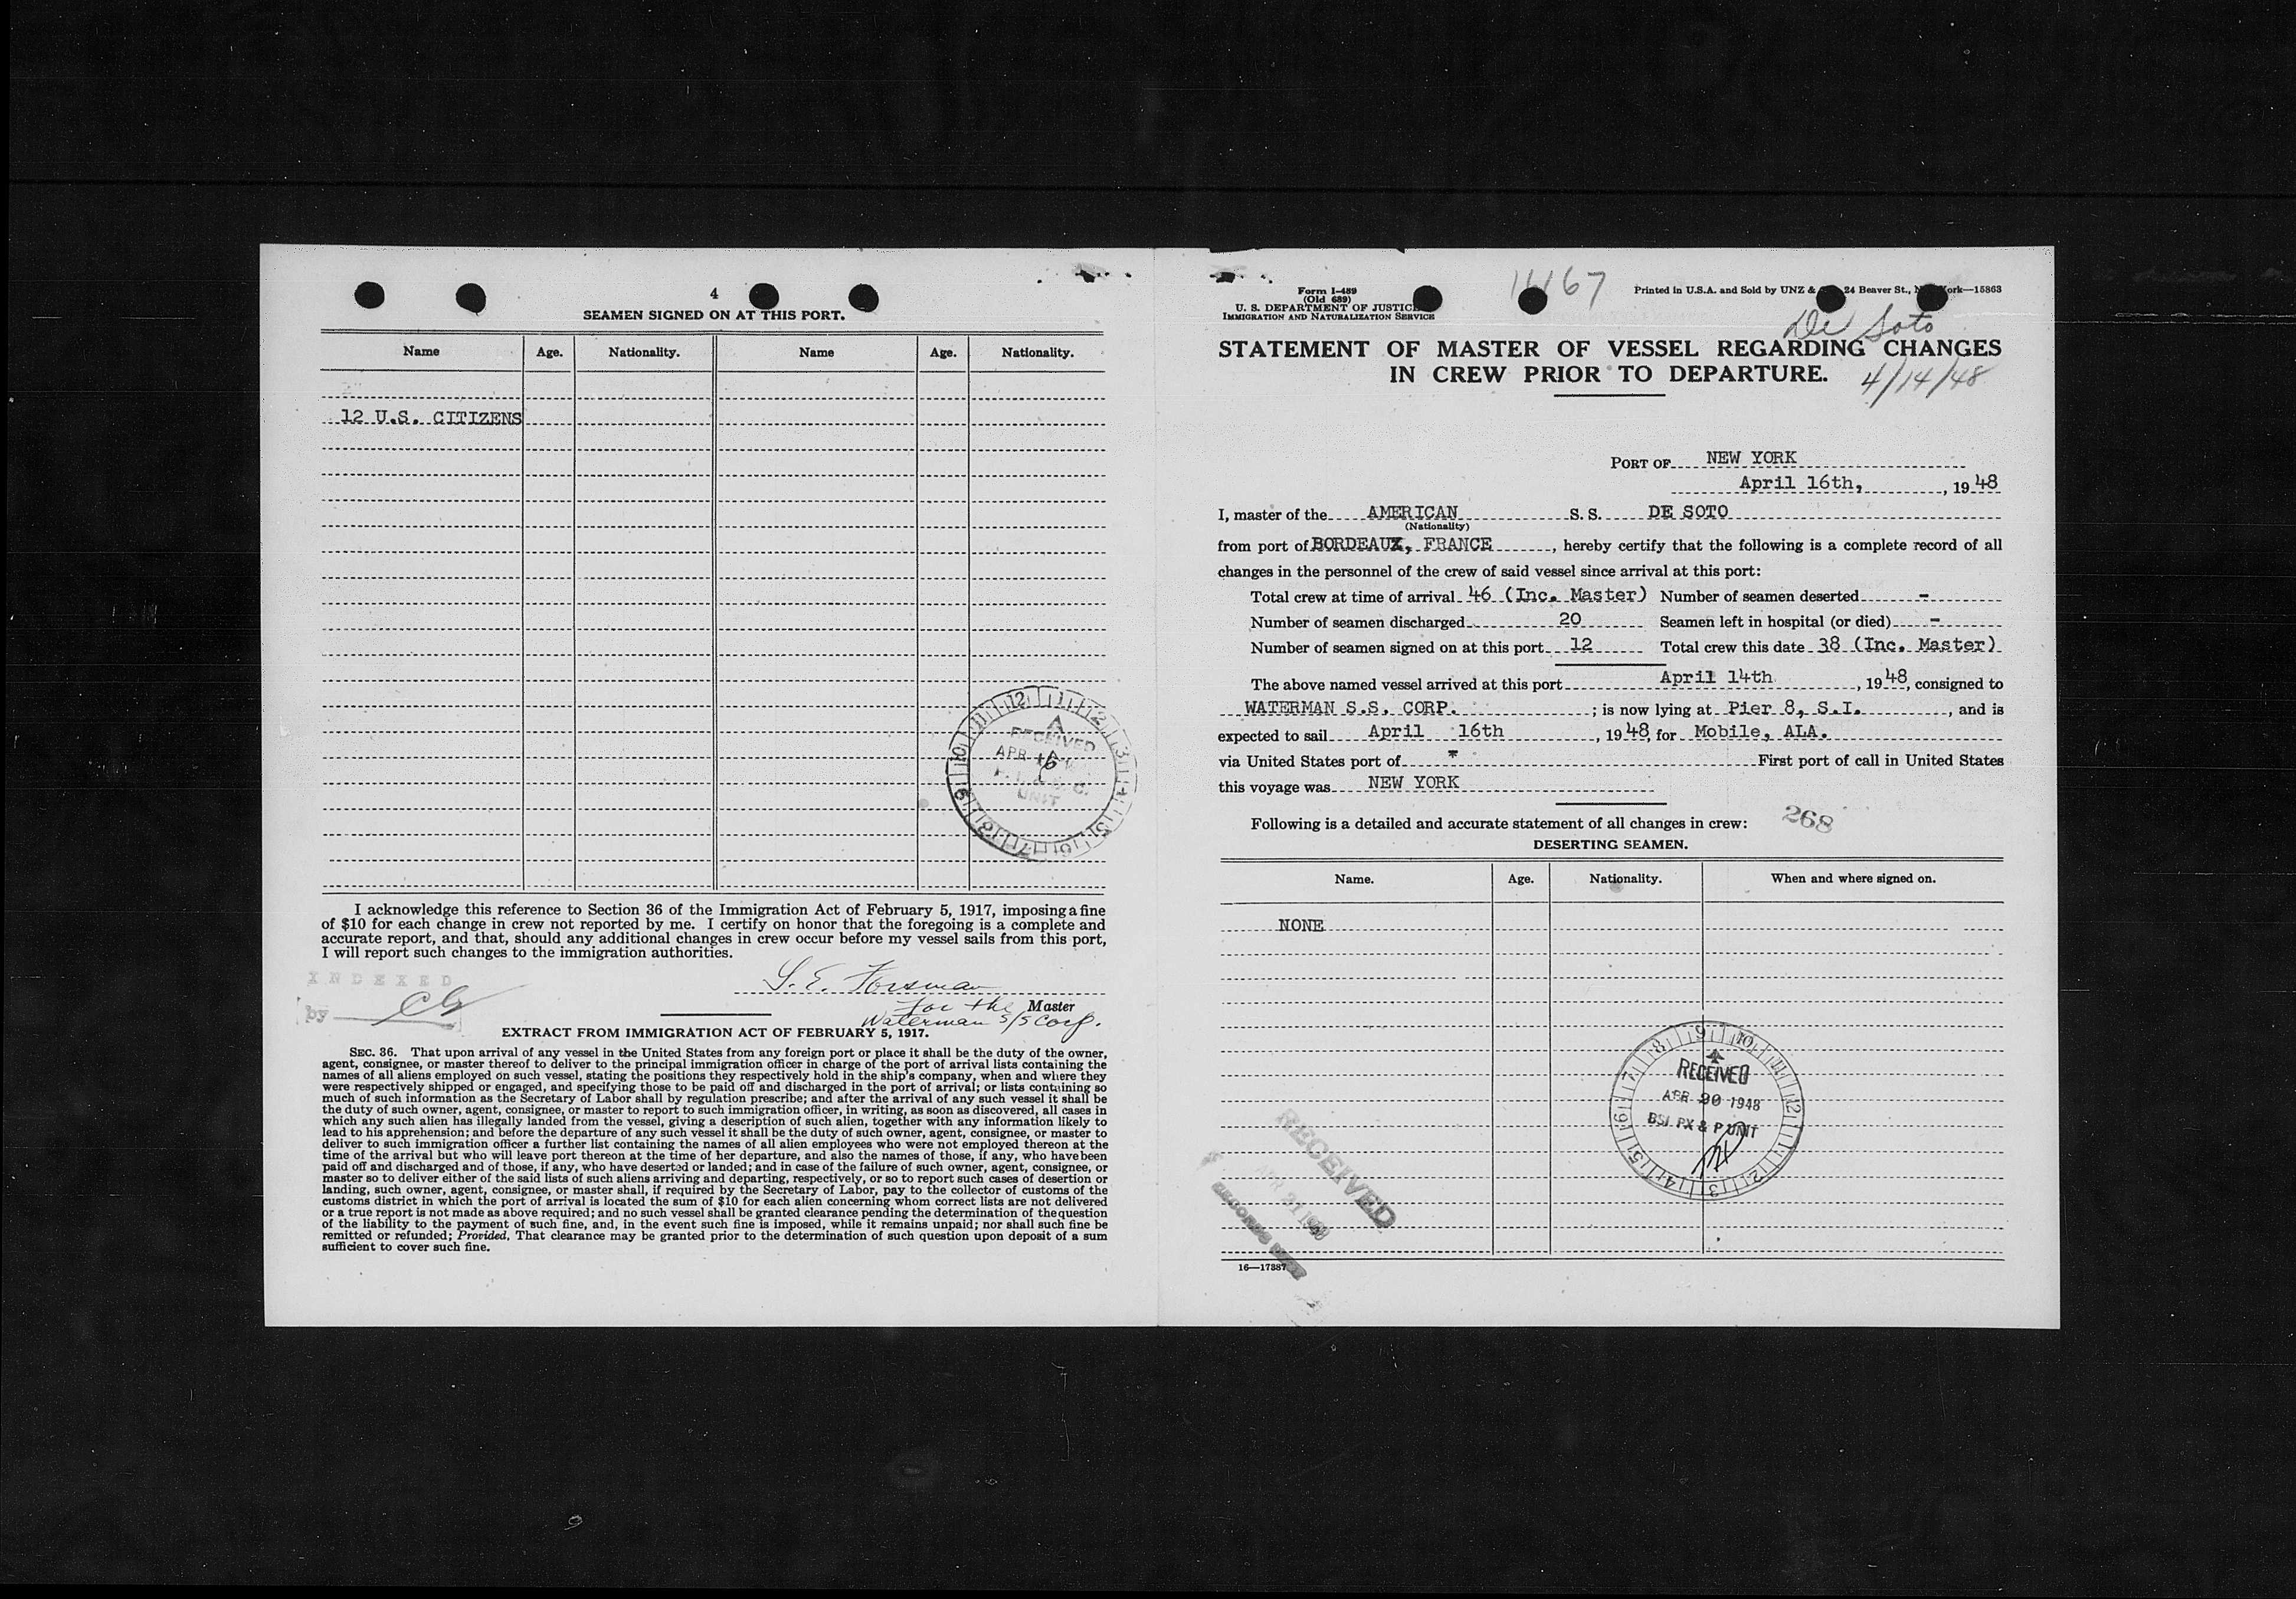 4
SEAMEN SIGNED ON AT THIS PORT.
Name Age. Nationality. Name Age. Nationality.
12 U.S. CITIZENS
RECEIVED
APR 16
UNIT
I acknowledge this reference to Section 36 of the Immigration Act of February 5, 1917, imposing a fine
of $10 for each change in crew not reported by me. I certify on honor that the foregoing is a complete and
accurate report, and that, should any additional changes in crew occur before my vessel sails from this port,
I will report such changes to the immigration authorities.
INDEXED
by CG
S. E. Forsman
for the Master
Waterman S/S Corp.
EXTRACT FROM IMMIGRATION ACT OF FEBRUARY 5, 1917.
SEC. 36. That upon arrival of any vessel in the United States from any foreign port or place it shall be the duty of the owner,
agent, consignee, or master thereof to deliver to the principal immigration officer in charge of the port of arrival lists containing the
names of all aliens employed on such vessel, stating the positions they respectively hold in the ship's company, when and where they
were respectively shipped or engaged, and specifying those to be paid off and discharged in the port of arrival; or lists containing so
much of such information as the Secretary of Labor shall by regulation prescribe; and after the arrival of any such vessel it shall be
the duty of such owner, agent, consignee, or master to report to such immigration officer, in writing, as soon as discovered, all cases in
which any such alien has illegally landed from the vessel, giving a description of such alien, together with any information likely to
lead to his apprehension; and before the departure of any such vessel it shall be the duty of such owner, agent, consignee, or master to
deliver to such immigration officer a further list containing the names of all alien employees who were not employed thereon at the
time of the arrival but who will leave port thereon at the time of her departure, and also the names of those, if any, who have been
paid off and discharged and of those, if any, who have deserted or landed; and in case of the failure of such owner, agent, consignee, or
master so to deliver either of the said lists of such aliens arriving and departing, respectively, or so to report such cases of desertion or
landing, such owner, agent, consignee, or master shall, if required by the Secretary of Labor, pay to the collector of customs of the
customs district in which the port of arrival is located the sum of $10 for each alien concerning whom correct lists are not delivered
or a true report is not made as above required; and no such vessel shall be granted clearance pending the determination of the question
of the liability to the payment of such fine, and, in the event such fine is imposed, while it remains unpaid; nor shall such fine be
remitted or refunded; Provided, That clearance may be granted prior to the determination of such question upon deposit of a sum
sufficient to cover such fine.
Form I-489
(Old 689)
U. S. DEPARTMENT OF JUSTICE
IMMIGRATION AND NATURALIZATION SERVICE
167
Printed in U.S.A. and Sold by UNZ & 24 Beaver St., York—15863
De Soto
STATEMENT OF MASTER OF VESSEL REGARDING CHANGES
IN CREW PRIOR TO DEPARTURE.
4/14/48
PORT OF NEW YORK
April 16th, , 1948
I, master of the AMERICAN S. S. DE SOTO
(Nationality)
from port of BORDEAUX, FRANCE , hereby certify that the following is a complete record of all
changes in the personnel of the crew of said vessel since arrival at this port:
Total crew at time of arrival 46 (Inc. Master) Number of seamen deserted -
Number of seamen discharged 20 Seamen left in hospital (or died) -
Number of seamen signed on at this port 12 Total crew this date 38 (Inc. Master)
The above named vessel arrived at this port April 14th , 1948, consigned to
WATERMAN S.S. CORP. ; is now lying at Pier 8, S.I. , and is
expected to sail April 16th , 1948, for Mobile, ALA.
via United States port of * First port of call in United States
this voyage was NEW YORK
Following is a detailed and accurate statement of all changes in crew: 268
DESERTING SEAMEN.
Name. Age. Nationality. When and where signed on.
NONE
RECEIVED
APR 20 1948
BSI PX & P UNIT
RECEIVED
16—17887